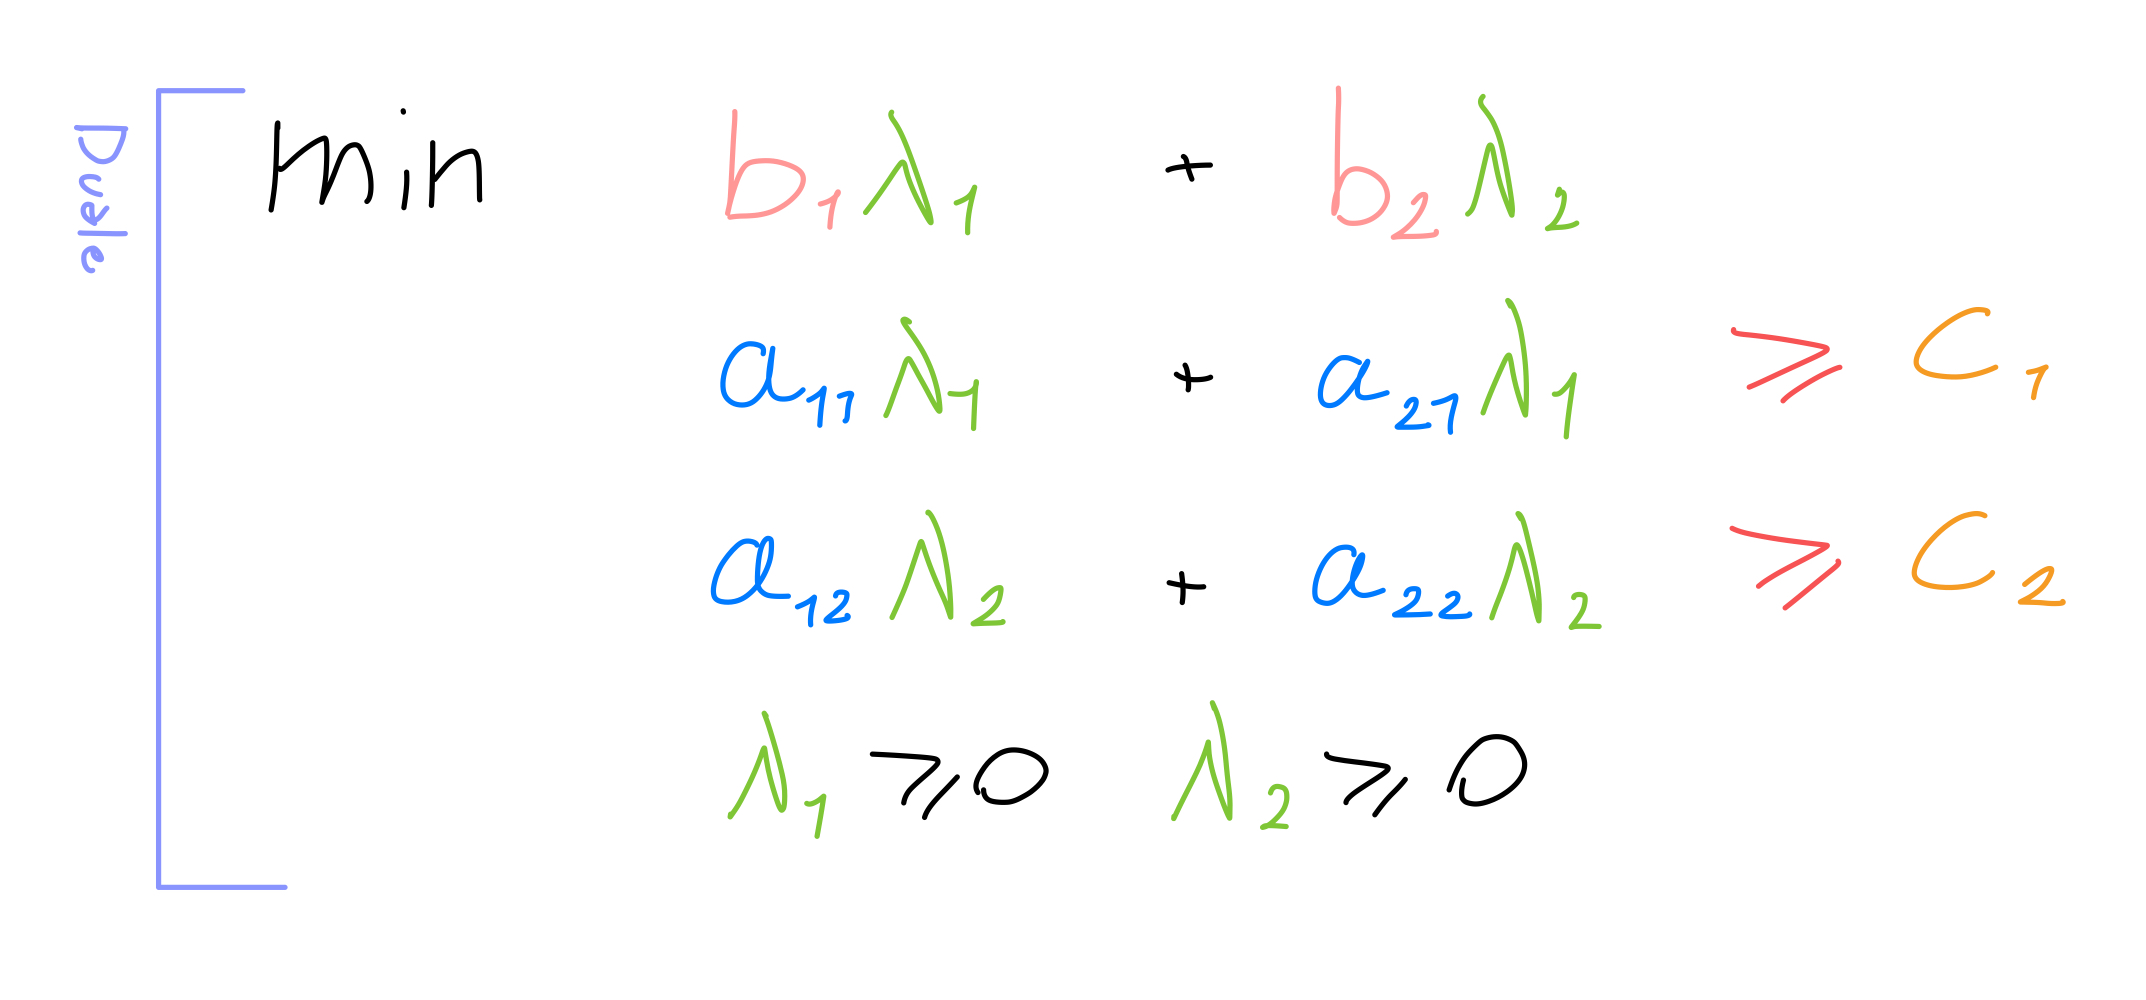 Duale
min b₁λ₁ + b₂λ₂
a₁₁λ₁ + a₂₁λ₁ ⩾ C₁
a₁₂λ₂ + a₂₂λ₂ ⩾ C₂
λ₁ ⩾ 0 λ₂ ⩾ 0